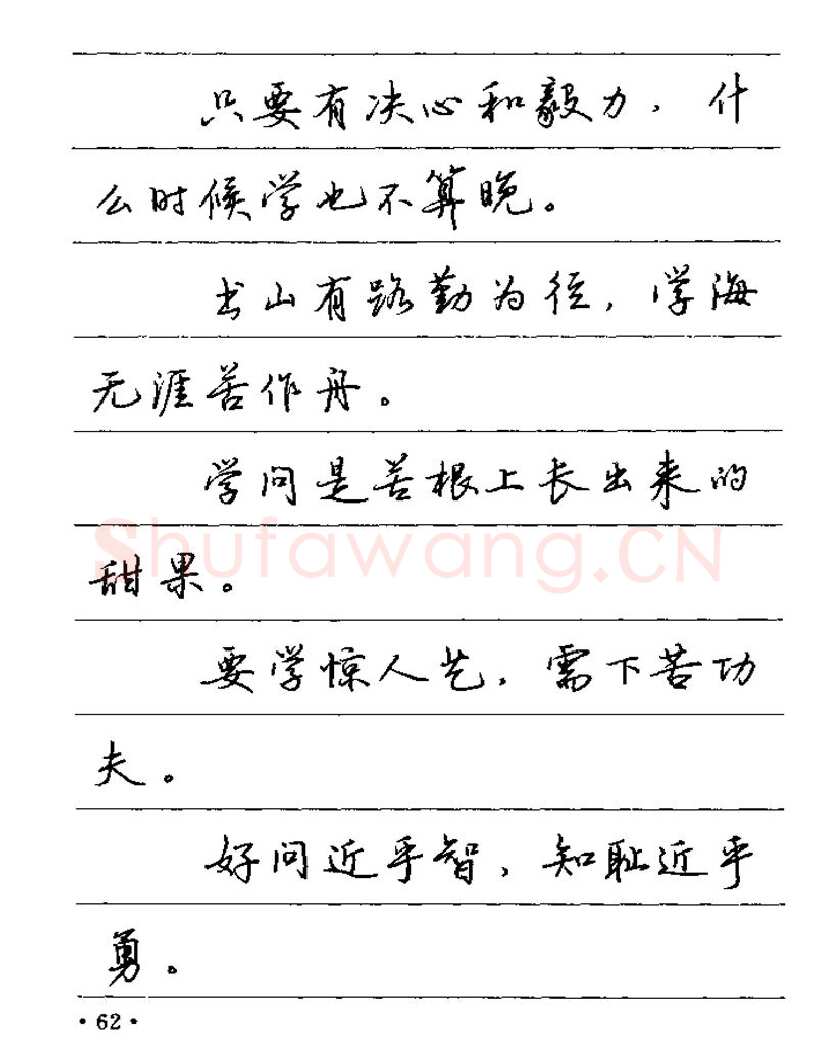 只要有决心和毅力，什
么时候学也不算晚。
书山有路勤为径，学海
无涯苦作舟。
学问是苦根上长出来的
甜果。
Shufawang.CN
要学惊人艺，需下苦功
夫。
好问近乎智，知耻近乎
勇。
·62·